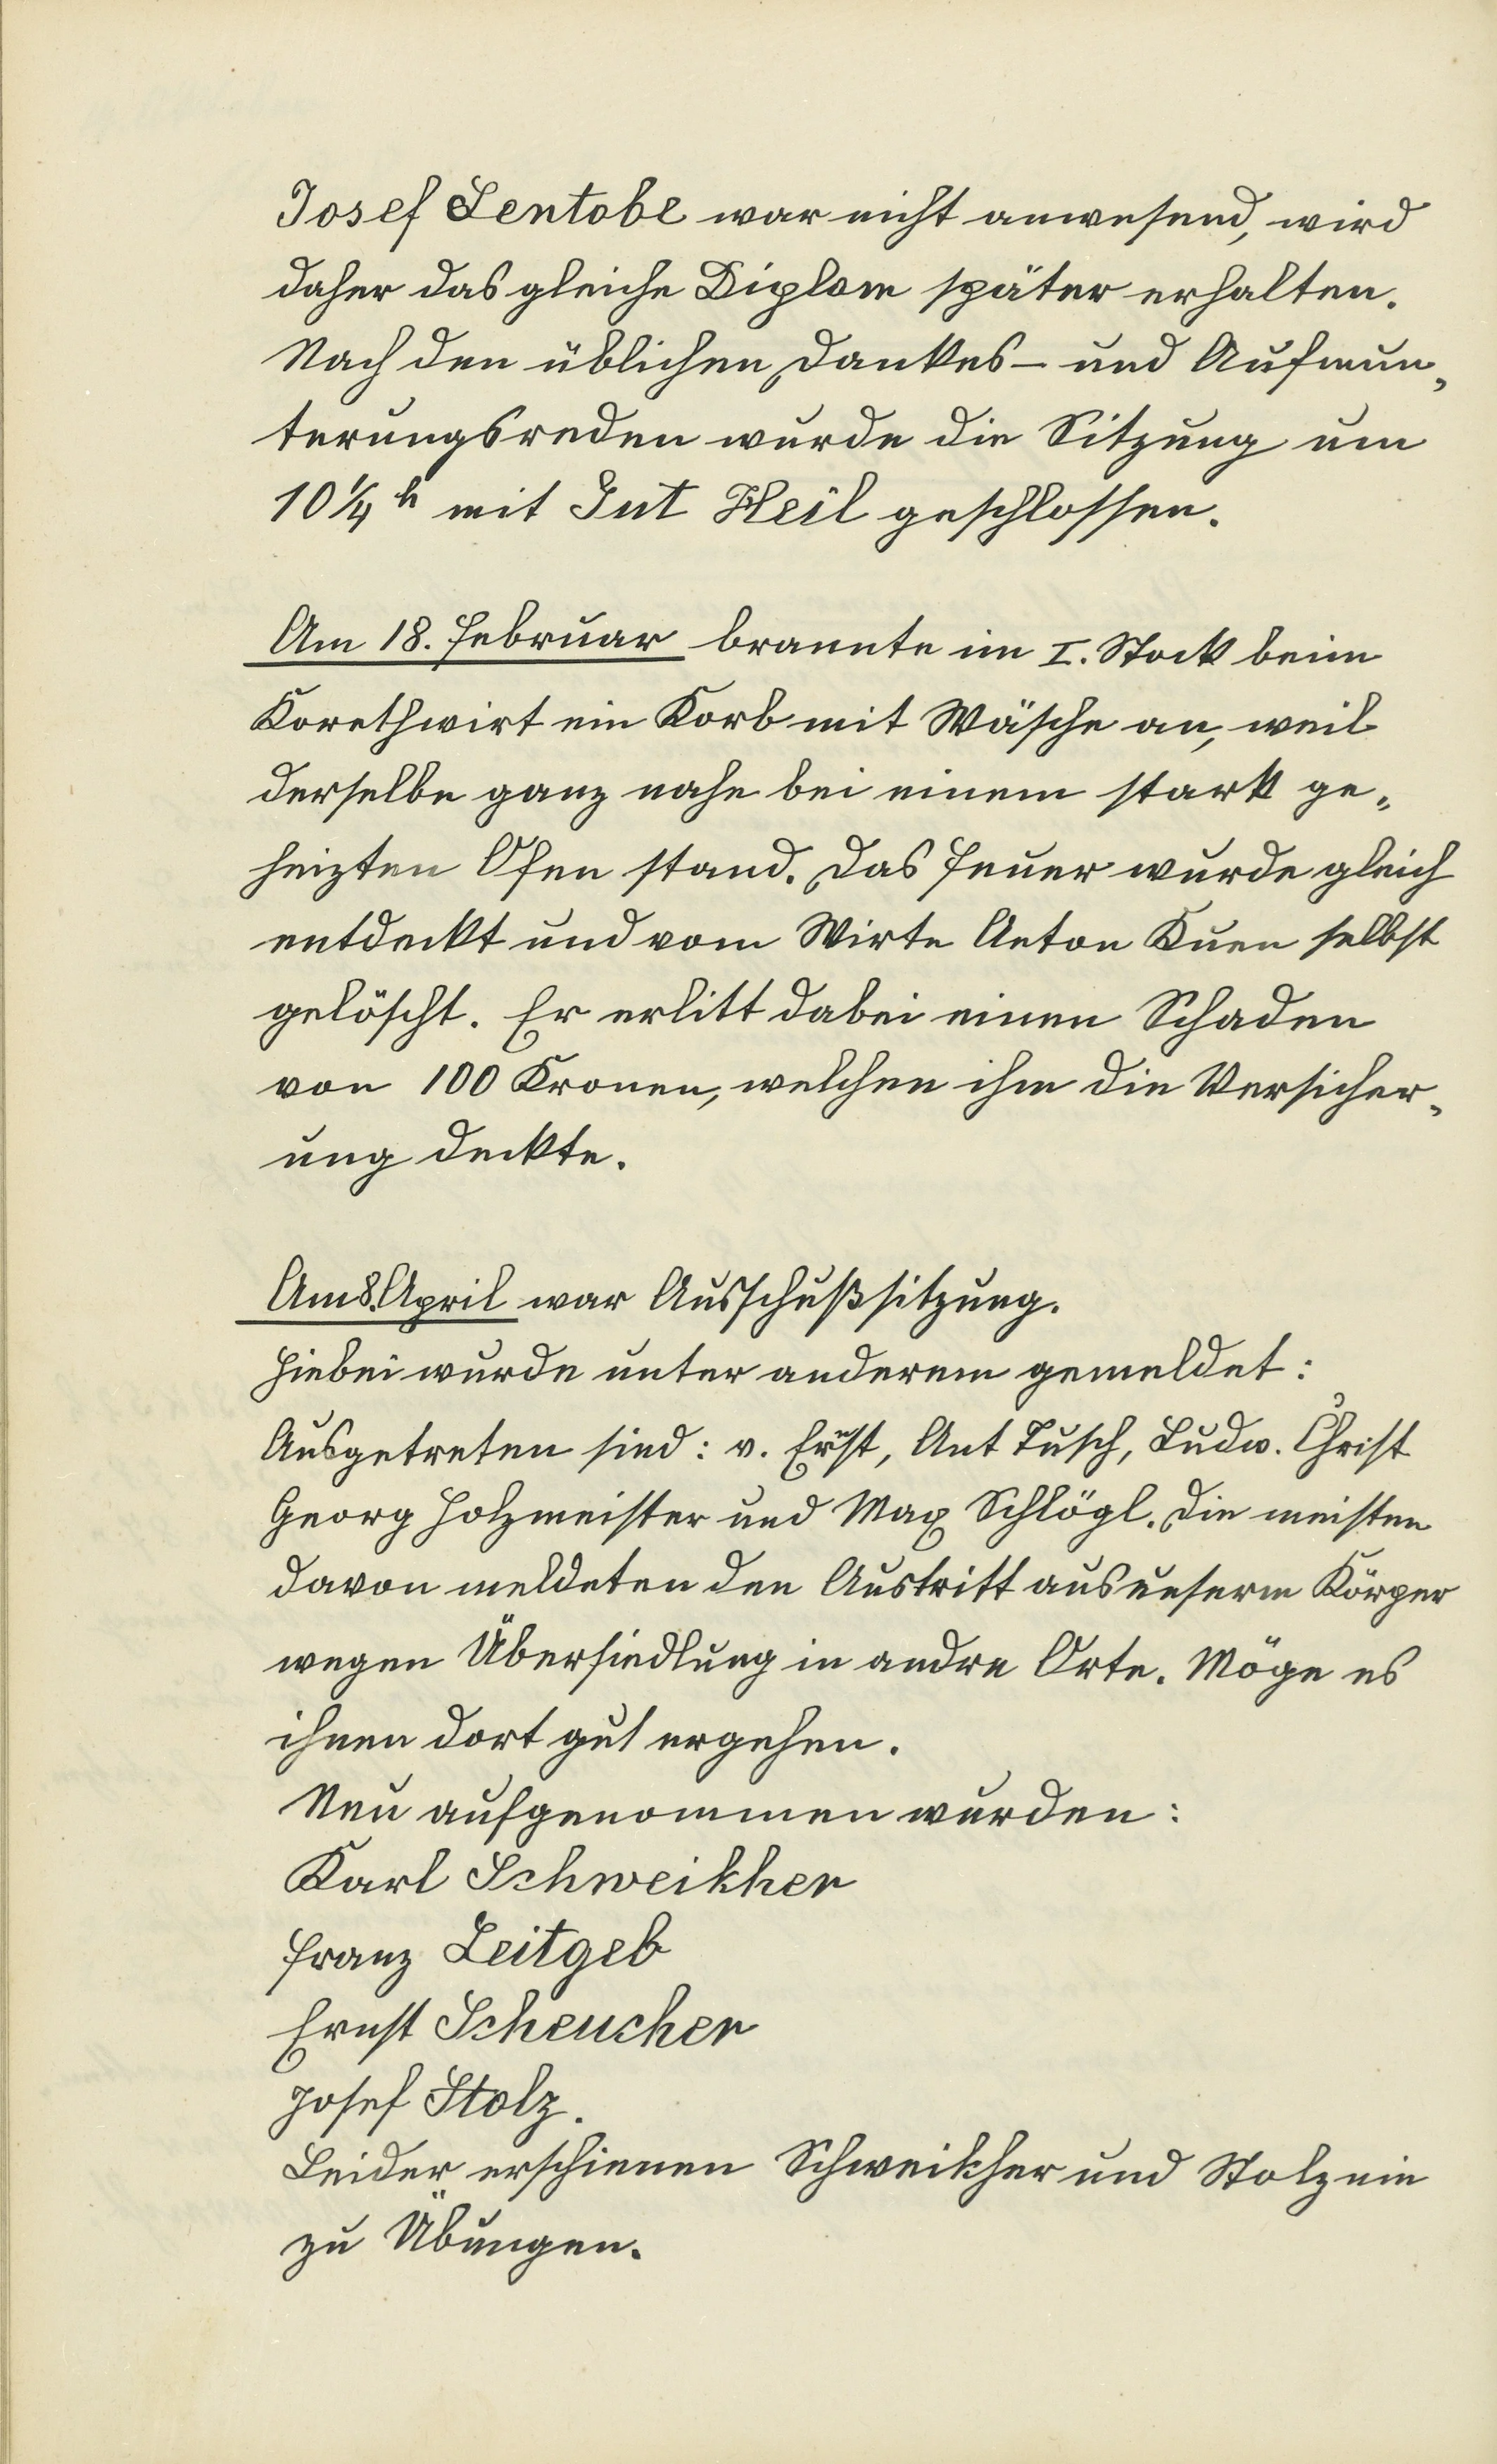 Josef Lentobe war nicht anwesend, wird
daher das gleiche Diplom später erhalten.
Nach den üblichen Dankes- und Aufmun„
terungsreden wurde die Sitzung um
10 ¼ h mit Gut Heil geschlossen.
Am 18. Februar brannte im I. Stock beim
Korethwirt ein Korb mit Wäsche an, weil
derselbe ganz nahe bei einem stark ge„
heizten Ofen stand. Das Feuer wurde gleich
entdeckt und vom Wirte Anton Kuen selbst
gelöscht. Er erlitt dabei einen Schaden
von 100 Kronen, welchen ihm die Versicher„
ung deckte.
Am 8. April war Ausschußsitzung.
Hiebei wurde unter anderem gemeldet:
Ausgetreten sind: v. Ernst, Ant Tusch, Ludw. Christ
Georg Holzmeister und Max Schlögl. Die meisten
davon meldeten den Austritt aus unserm Körper
wegen Übersiedlung in andre Orte. Möge es
ihnen dort gut ergehen.
Neu aufgenommen wurden:
Karl Schweikher
Franz Leitgeb
Ernst Scheucher
Josef Stolz.
Leider erschienen Schweikher und Stolz nie
zu Übungen.